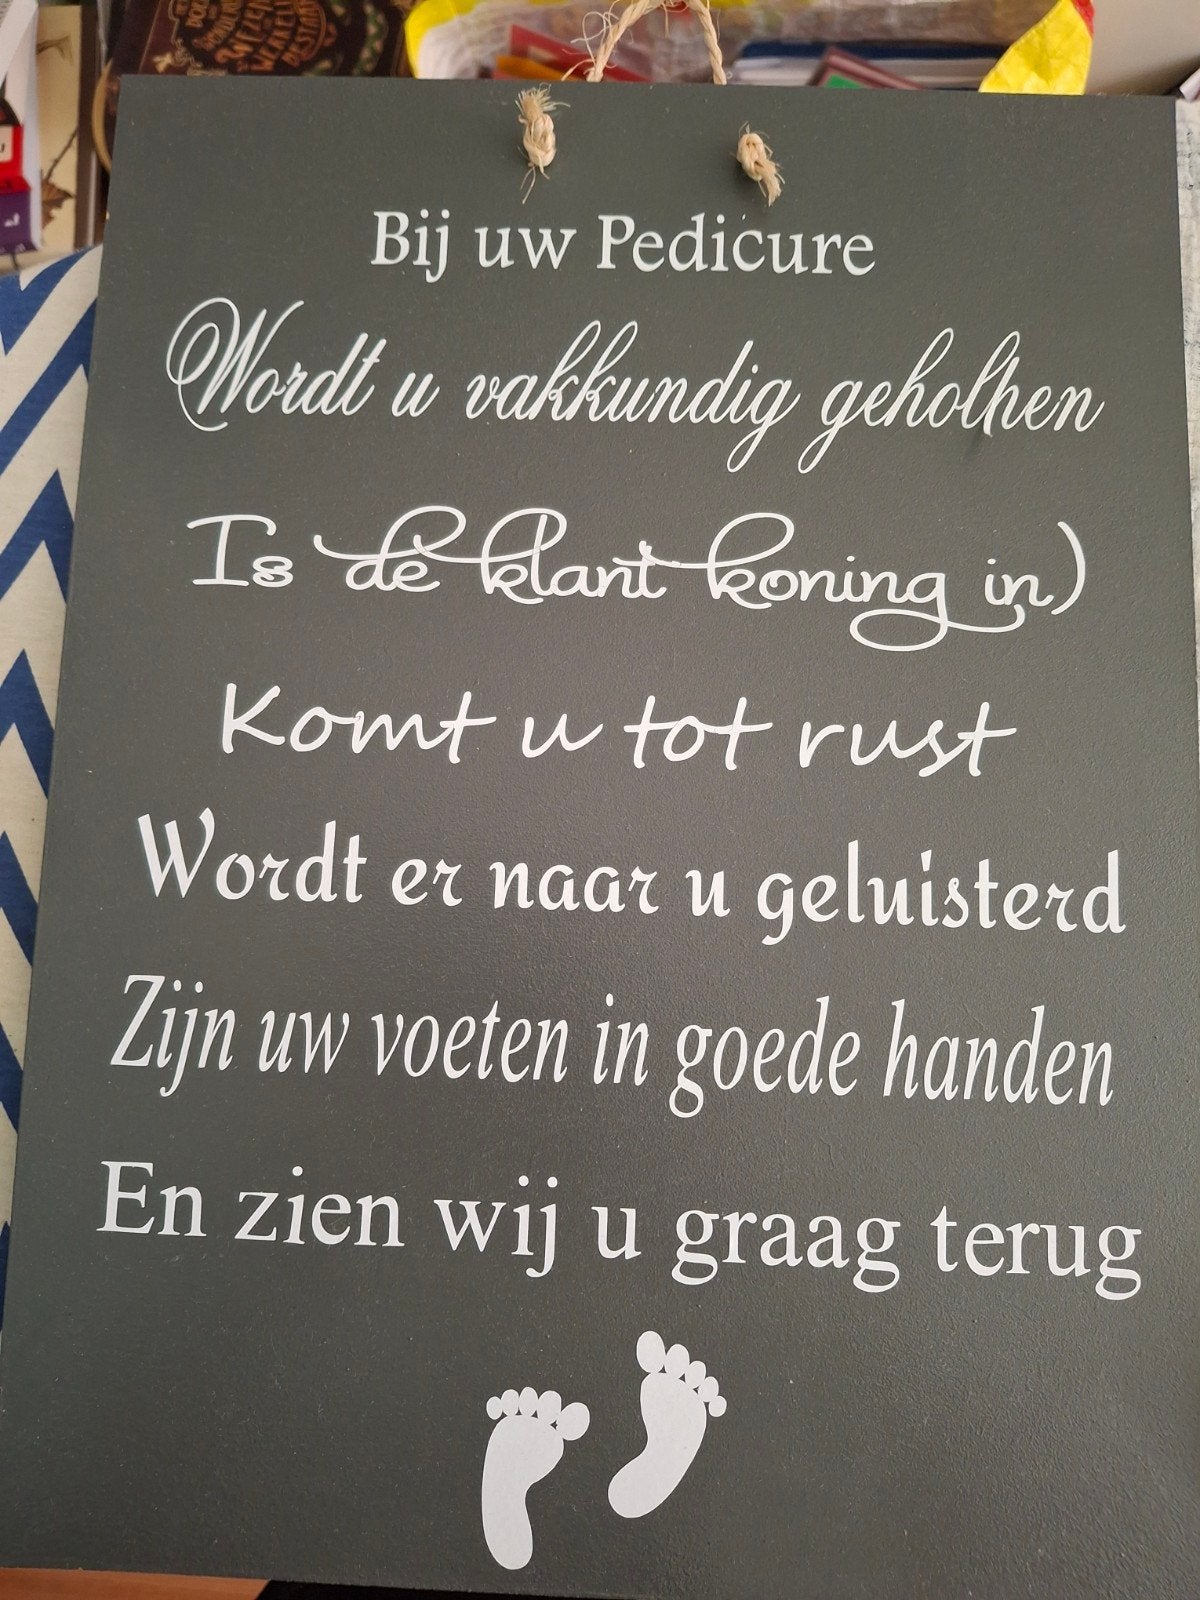 Bij uw Pedicure
Wordt u vakkundig geholhen
Is de klant koning in)
Komt u tot rust
Wordt er naar u geluisterd
Zijn uw voeten in goede handen
En zien wij u graag terug